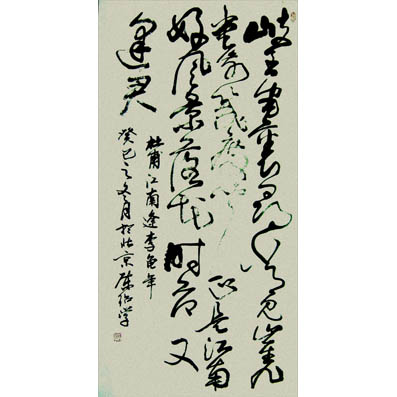 岐王宅裏寻常见崔九
堂前几度闻正是江南
好风景落花时节又
逢君
杜甫江南逢李龟年
癸巳之冬月於北京